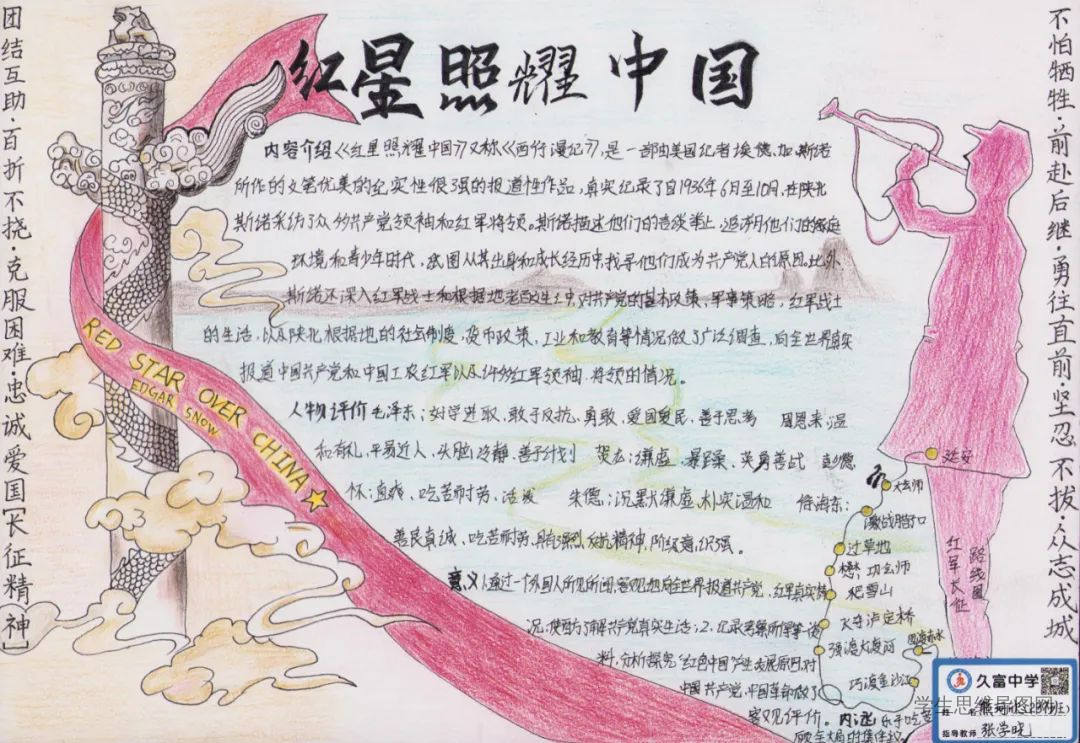 红星照耀中国
团结互助·百折不挠·克服困难·忠诚爱国[长征精神]
不怕牺牲·前赴后继·勇往直前·坚忍不拔·众志成城
内容介绍《红星照耀中国》又称《西行漫记》,是一部由美国记者埃德加.斯诺
所作的文笔优美的纪实性很强的报道性作品,真实纪录了自1936年6月至10月,在陕北
斯诺采访了众多共产党领袖和红军将领。斯诺描述他们的言谈举止,追溯他们的家庭
环境和青少年时代,试图从其出身和成长经历中,找寻他们成为共产党人的原因。此外
斯诺还深入红军战士和根据地老百姓当中,对共产党的基本政策、军事策略,红军战士
的生活,以及陕北根据地的社会制度、货币政策、工业和教育等情况做了广泛调查,向全世界真实
报道中国共产党和中国工农红军以及许多红军领袖.将领的情况。
人物评价 毛泽东:好学进取、敢于反抗、勇敢、爱国爱民、善于思考 周恩来:温
和有礼、平易近人、头脑冷静、善于计划 贺龙:谦虚、暴躁、英勇善战 彭德
怀:直爽、吃苦耐劳、活泼 朱德:沉默谦虚、朴实温和 徐海东:
善良真诚、吃苦耐劳、具有强烈反抗精神,阶级意识强。
意义1.通过一个外国人所见所闻,客观地向全世界报道共产党、红军真实情
况,使西方了解共产党真实生活;2.纪录考察所得第一手
料,分析探究"红色中国"产生、发展原因,对
中国共产党、中国革命做了
客观评价。内涵:乐于吃苦
顾全大局的集体
RED STAR OVER CHINA
EDGAR SNOW
延安
大会师
激战腊子口
过草地
懋功会师
爬雪山
飞夺泸定桥
强渡大渡河
四渡赤水
巧渡金沙江
红军长征
路线图
久富中学
学生思维导图网
指导教师 张学晓